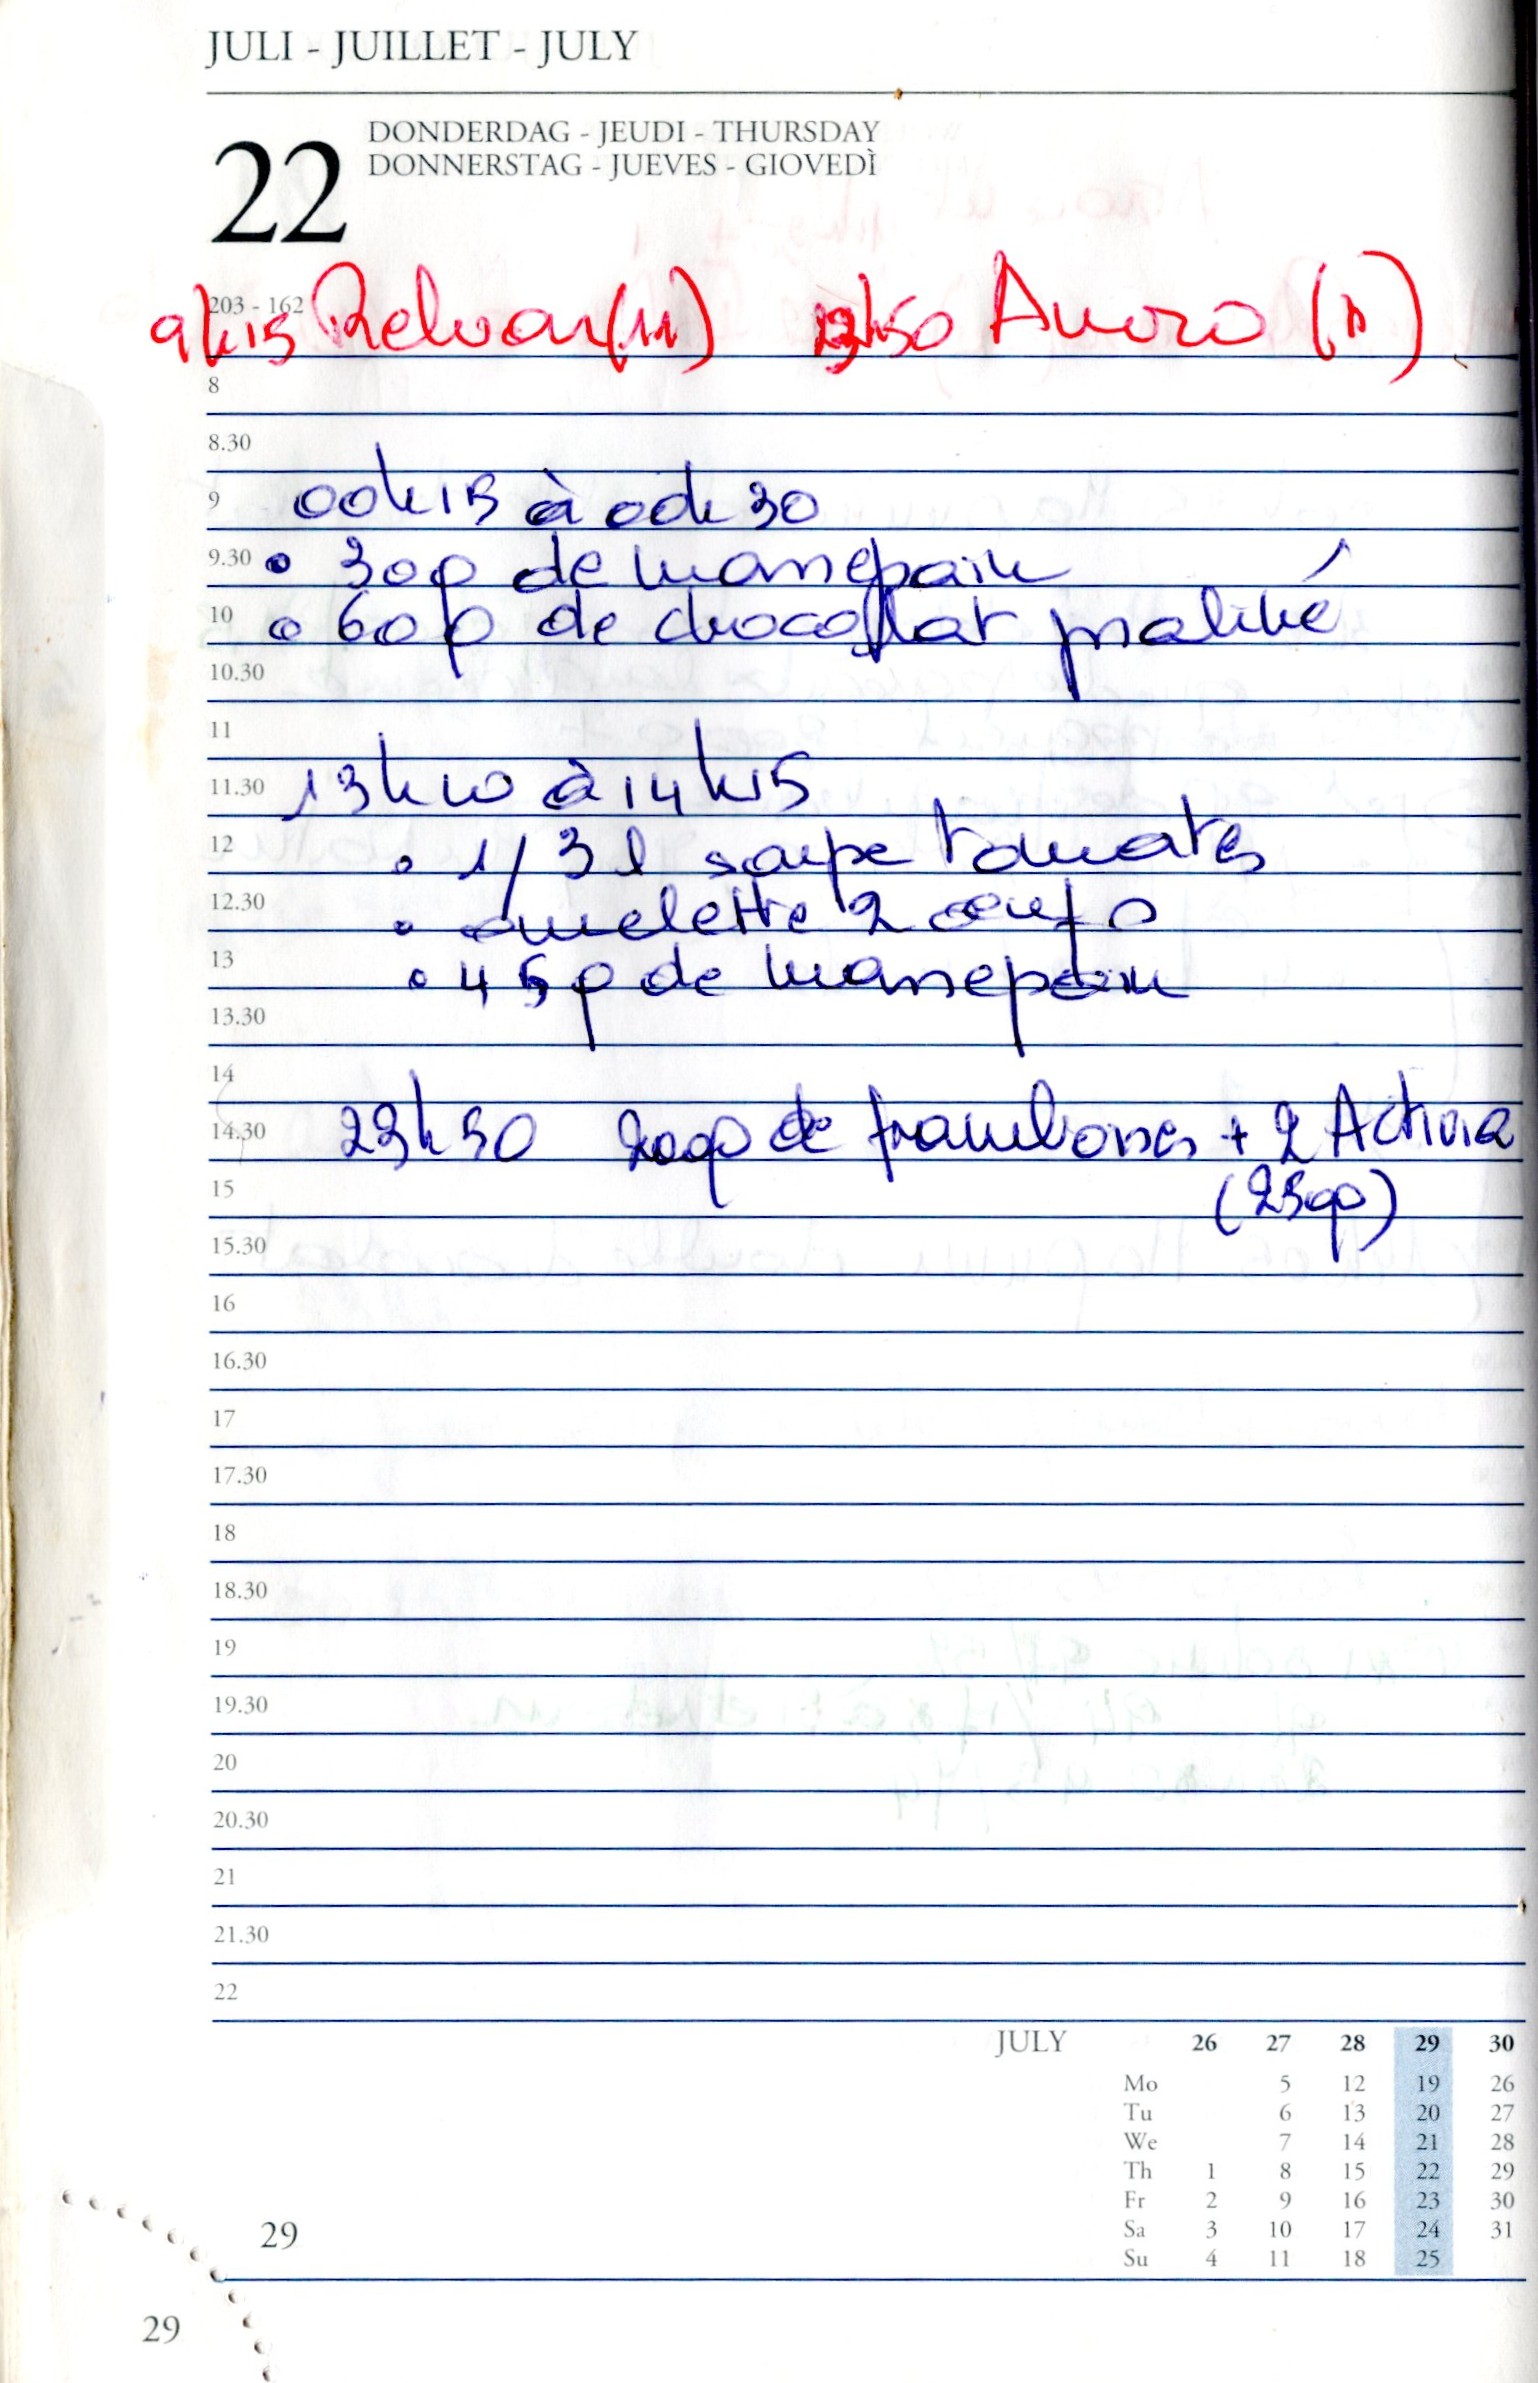 JULI - JUILLET - JULY
22
DONDERDAG - JEUDI - THURSDAY
DONNERSTAG - JUEVES - GIOVEDÌ
203 - 162
9h15 (M) h50 (A)
8
8.30
9 00h15 à 00h30
9.30 • 30g de massepain
10 • 60g de chocolat praliné
10.30
11
11.30 13h10 à 14h15
12 • 1/3 l soupe tomates
12.30 • omelette 2 oeufs
13 • 45g de massepain
13.30
14
14.30 23h50 200g de framboises + 2 Activia
15 (250g)
15.30
16
16.30
17
17.30
18
18.30
19
19.30
20
20.30
21
21.30
22
JULY 26 27 28 29 30
Mo 5 12 19 26
Tu 6 13 20 27
We 7 14 21 28
Th 1 8 15 22 29
Fr 2 9 16 23 30
Sa 3 10 17 24 31
Su 4 11 18 25
29
29